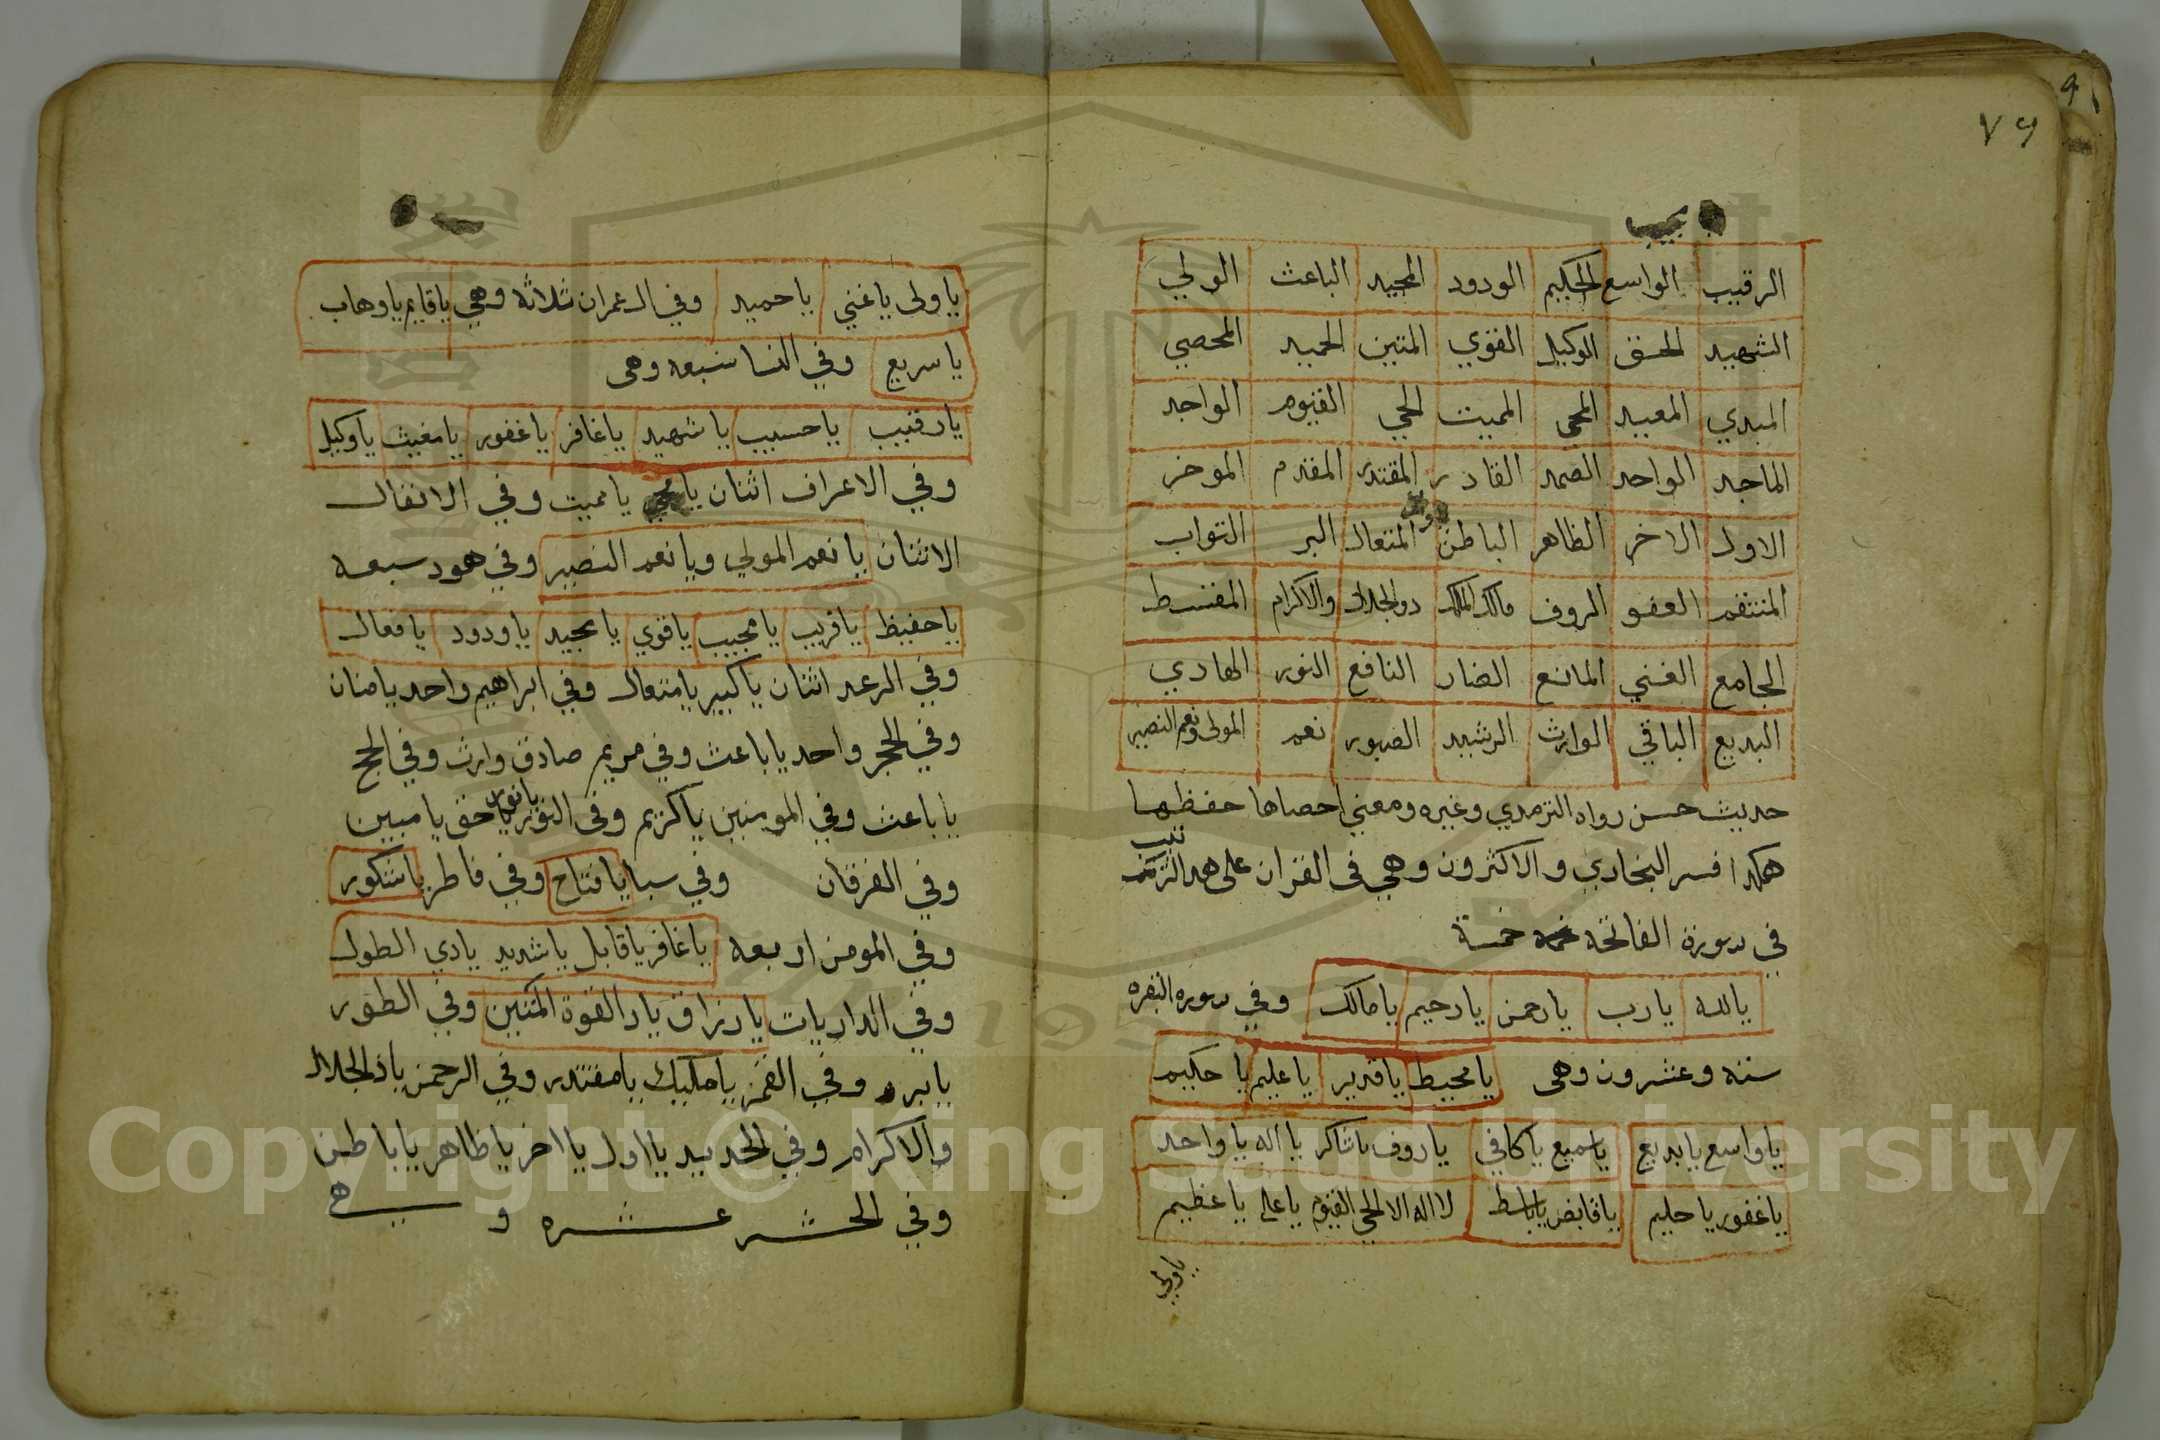 ٧٩
الرقيب الواسع الحكيم الودود المجيد الباعث الولي
الشهيد الحق الوكيل القوي المتين الحميد المحصي
المبدي المعيد المحي المميت الحي القيوم الواجد
الماجد الواحد الصمد القادر المقتدر المقدم الموخر
الاول الاخر الظاهر الباطن المتعال البر التواب
المنتقم العفو الروف مالك الملك دو الجلال والاكرام المقسط
الجامع الغني المانع الضار النافع النور الهادي
البديع الباقي الوارث الرشيد الصبور نعم المولى ونعم النصير
حديث حسن رواه الترمدي وغيره ومعنى احصاها حفظها
هكدا فسر البخاري والاكثرون وهي في القران على هدا الترتيب
في سورة الفاتحه خمسة
يا الله يا رب يا رحمن يا رحيم يا مالك وفي سوره البقره
سته وعشرون وهى يا محيط يا قدير يا عليم يا حكيم
يا واسع يا بديع يا سميع يا كافي يا روف يا شاكر يا اله يا واحد
يا غفور يا حليم يا قابض يا باسط لا اله الا الحي القيوم يا علي يا عظيم
يا ولي
يا ولى يا غني يا حميد وفي ال عمران ثلاثه وهي يا قايم يا وهاب
يا سريع وفي النسا سبعه وهى
يا رقيب يا حسيب يا شهيد يا غافر يا غفور يا مغيث يا وكيل
وفي الاعراف اثنان يا محي يا مميت وفي الانفال
الاثنان يا نعم المولي ويا نعم النصير وفي هود سبعه
يا حفيظ يا قريب يا مجيب يا قوي يا مجيد يا ودود يا فعال
وفي الرعد اثنان يا كبير يا متعال وفي ابراهيم واحد يا منان
وفي الحجر واحد يا باعث وفي مريم صادق وارث وفي الحج
يا باعث وفي المومنين يا كريم وفى النور يا نور يا حق يا مبين
وفي الفرقان وفي سبا يا فتاح وفي فاطر يا شكور
وفي المومن اربعه يا غافر يا قابل يا شديد يا دي الطول
وفي الداريات يا رزاق يا د القوة المتين وفي الطور
يا بر وفي القمر يا مليك يا مقتدر وفي الرحمن يا ذ الجلال
والاكرام وفي الحديد يا اول يا اخر يا ظاهر يا باطن
وفي الحشر عشره و هي
Copyright © King Saud University